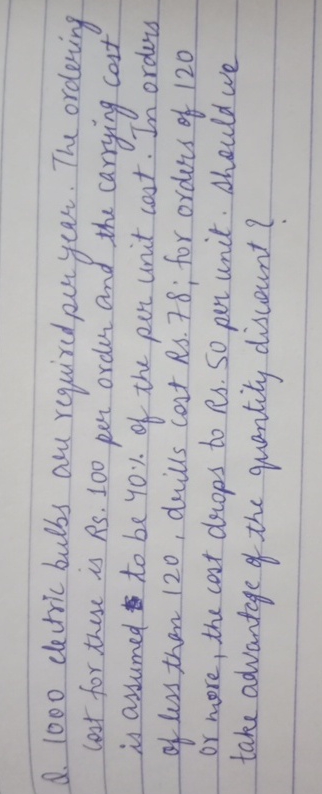 Q. 1000 eletric bulbs are required per year. The ordering
cost for these is Rs. 100 per order and the carrying cost
is assumed to be 40% of the per unit cost. In orders
of less than 120, drills cost Rs. 78; for orders of 120
or more, the cost drops to Rs. 50 per unit. Should we
take advantage of the quantity discount?